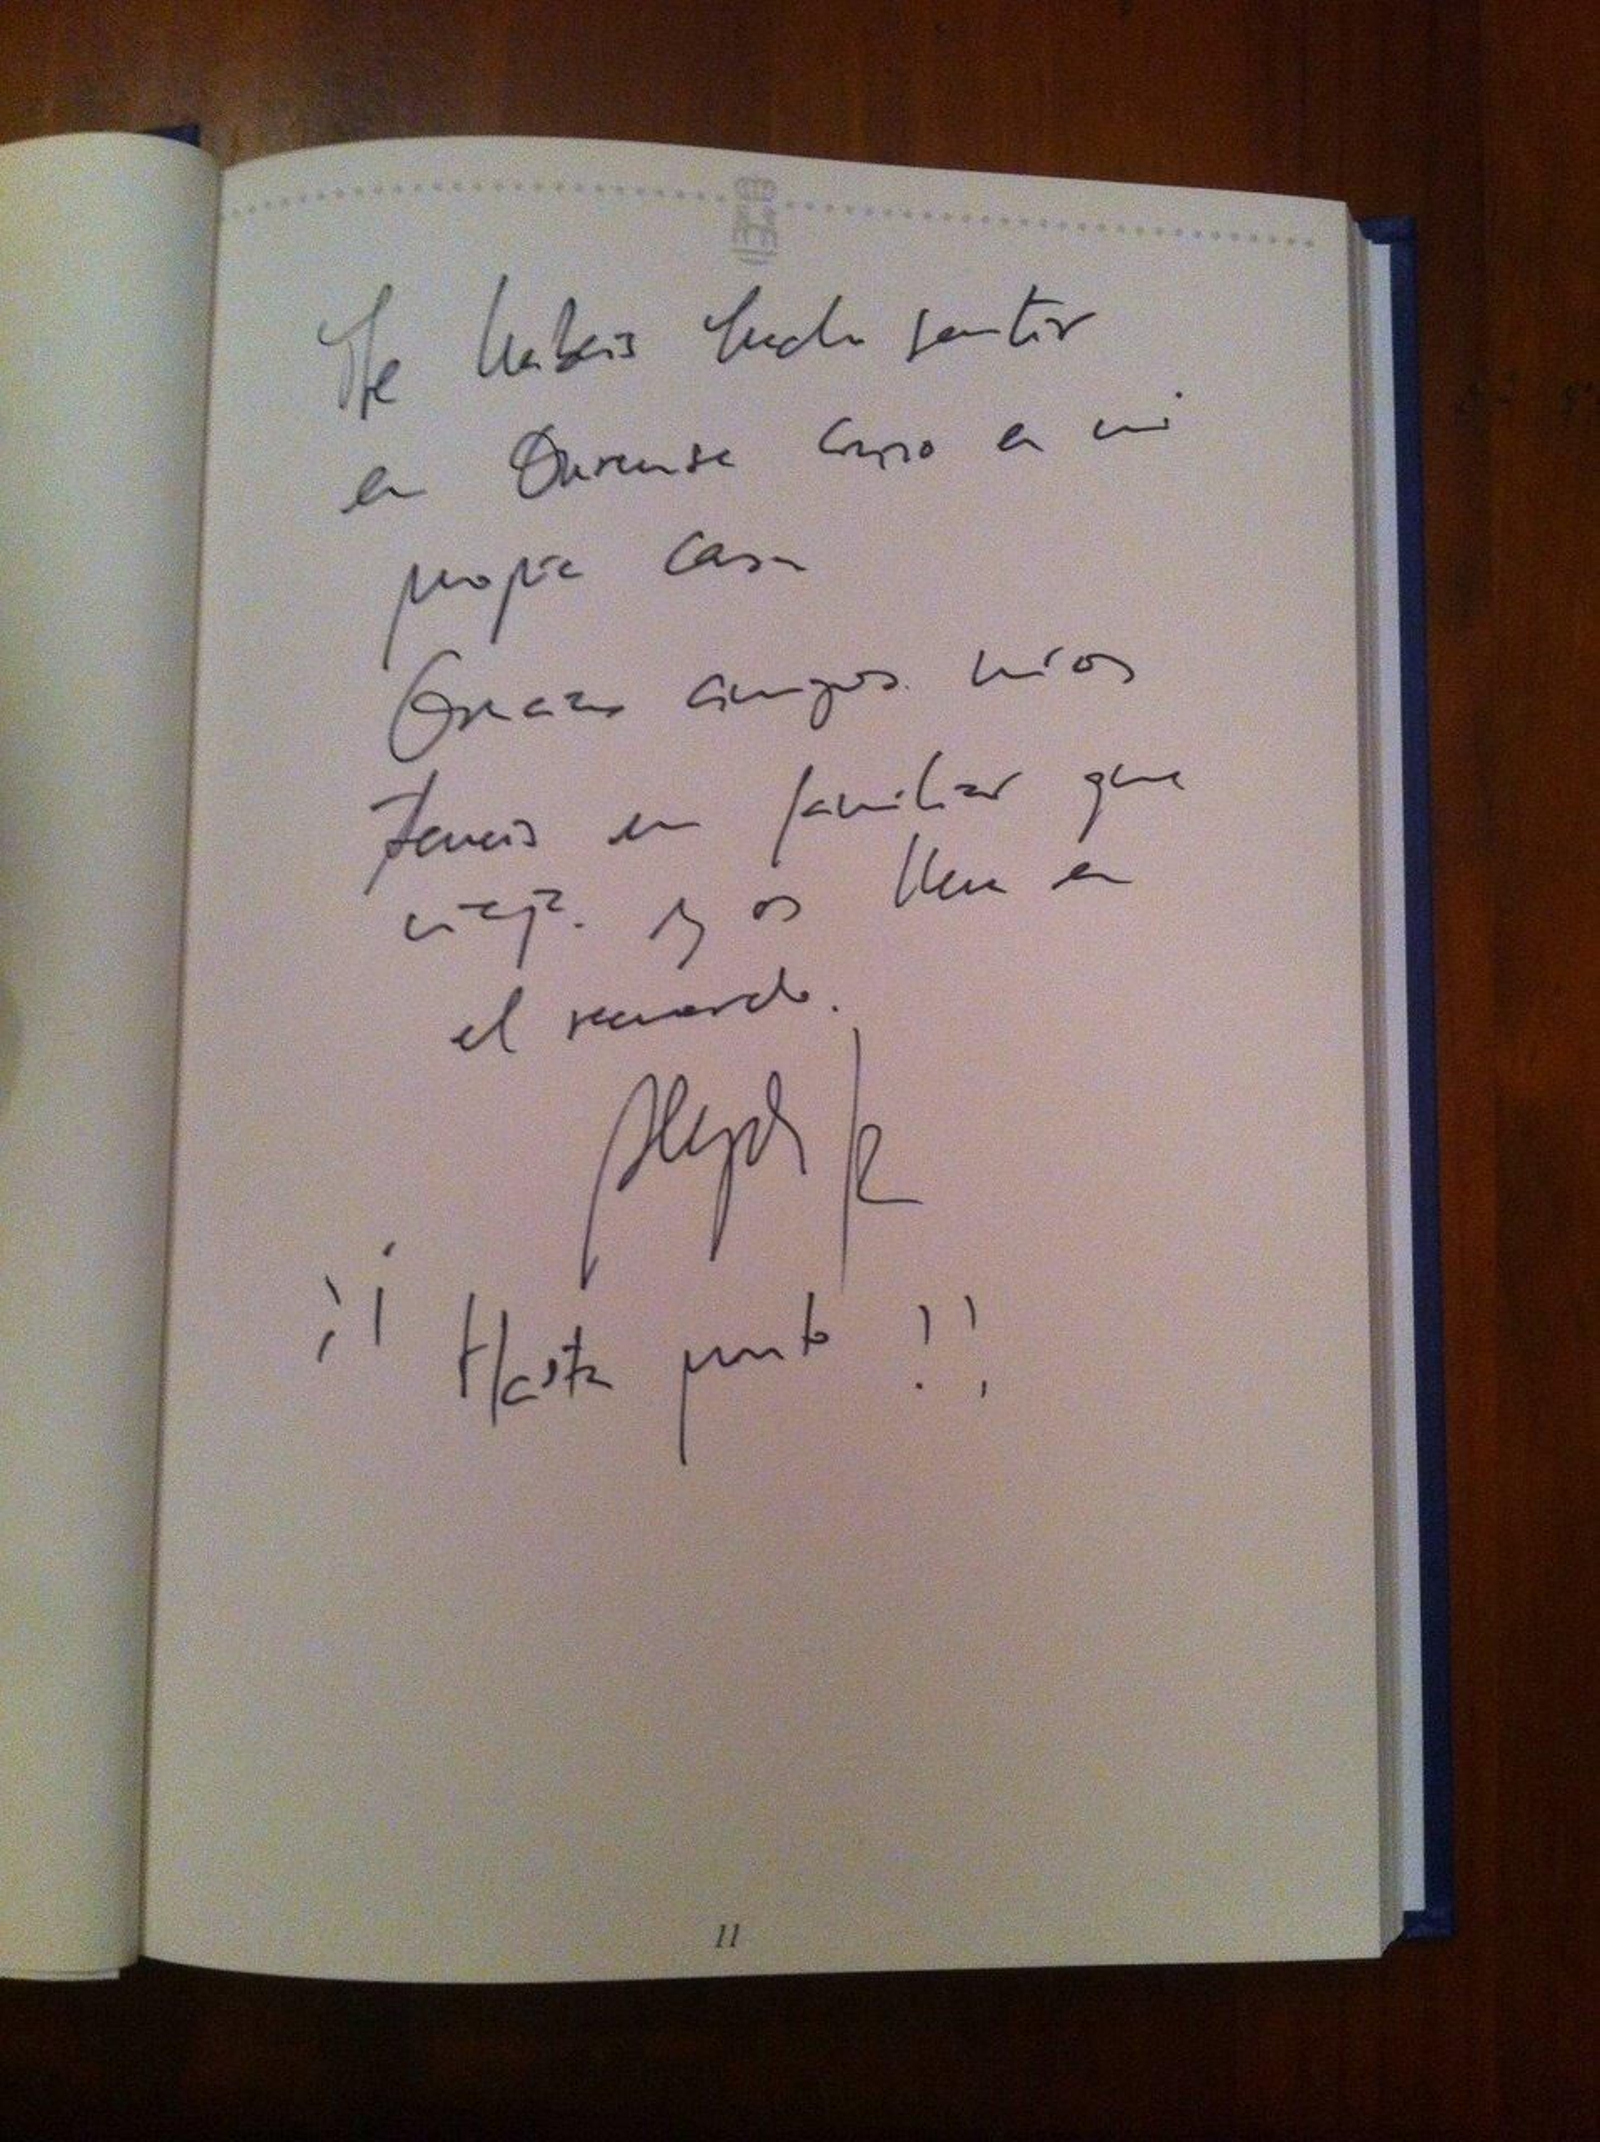 Me habeis hecho sentir
en Ourense como en mi
propia casa
Gracias amigos mios
teneis un familiar que
viaja. y os lleva en
el recuerdo.
¡¡ Hasta pronto !!
11